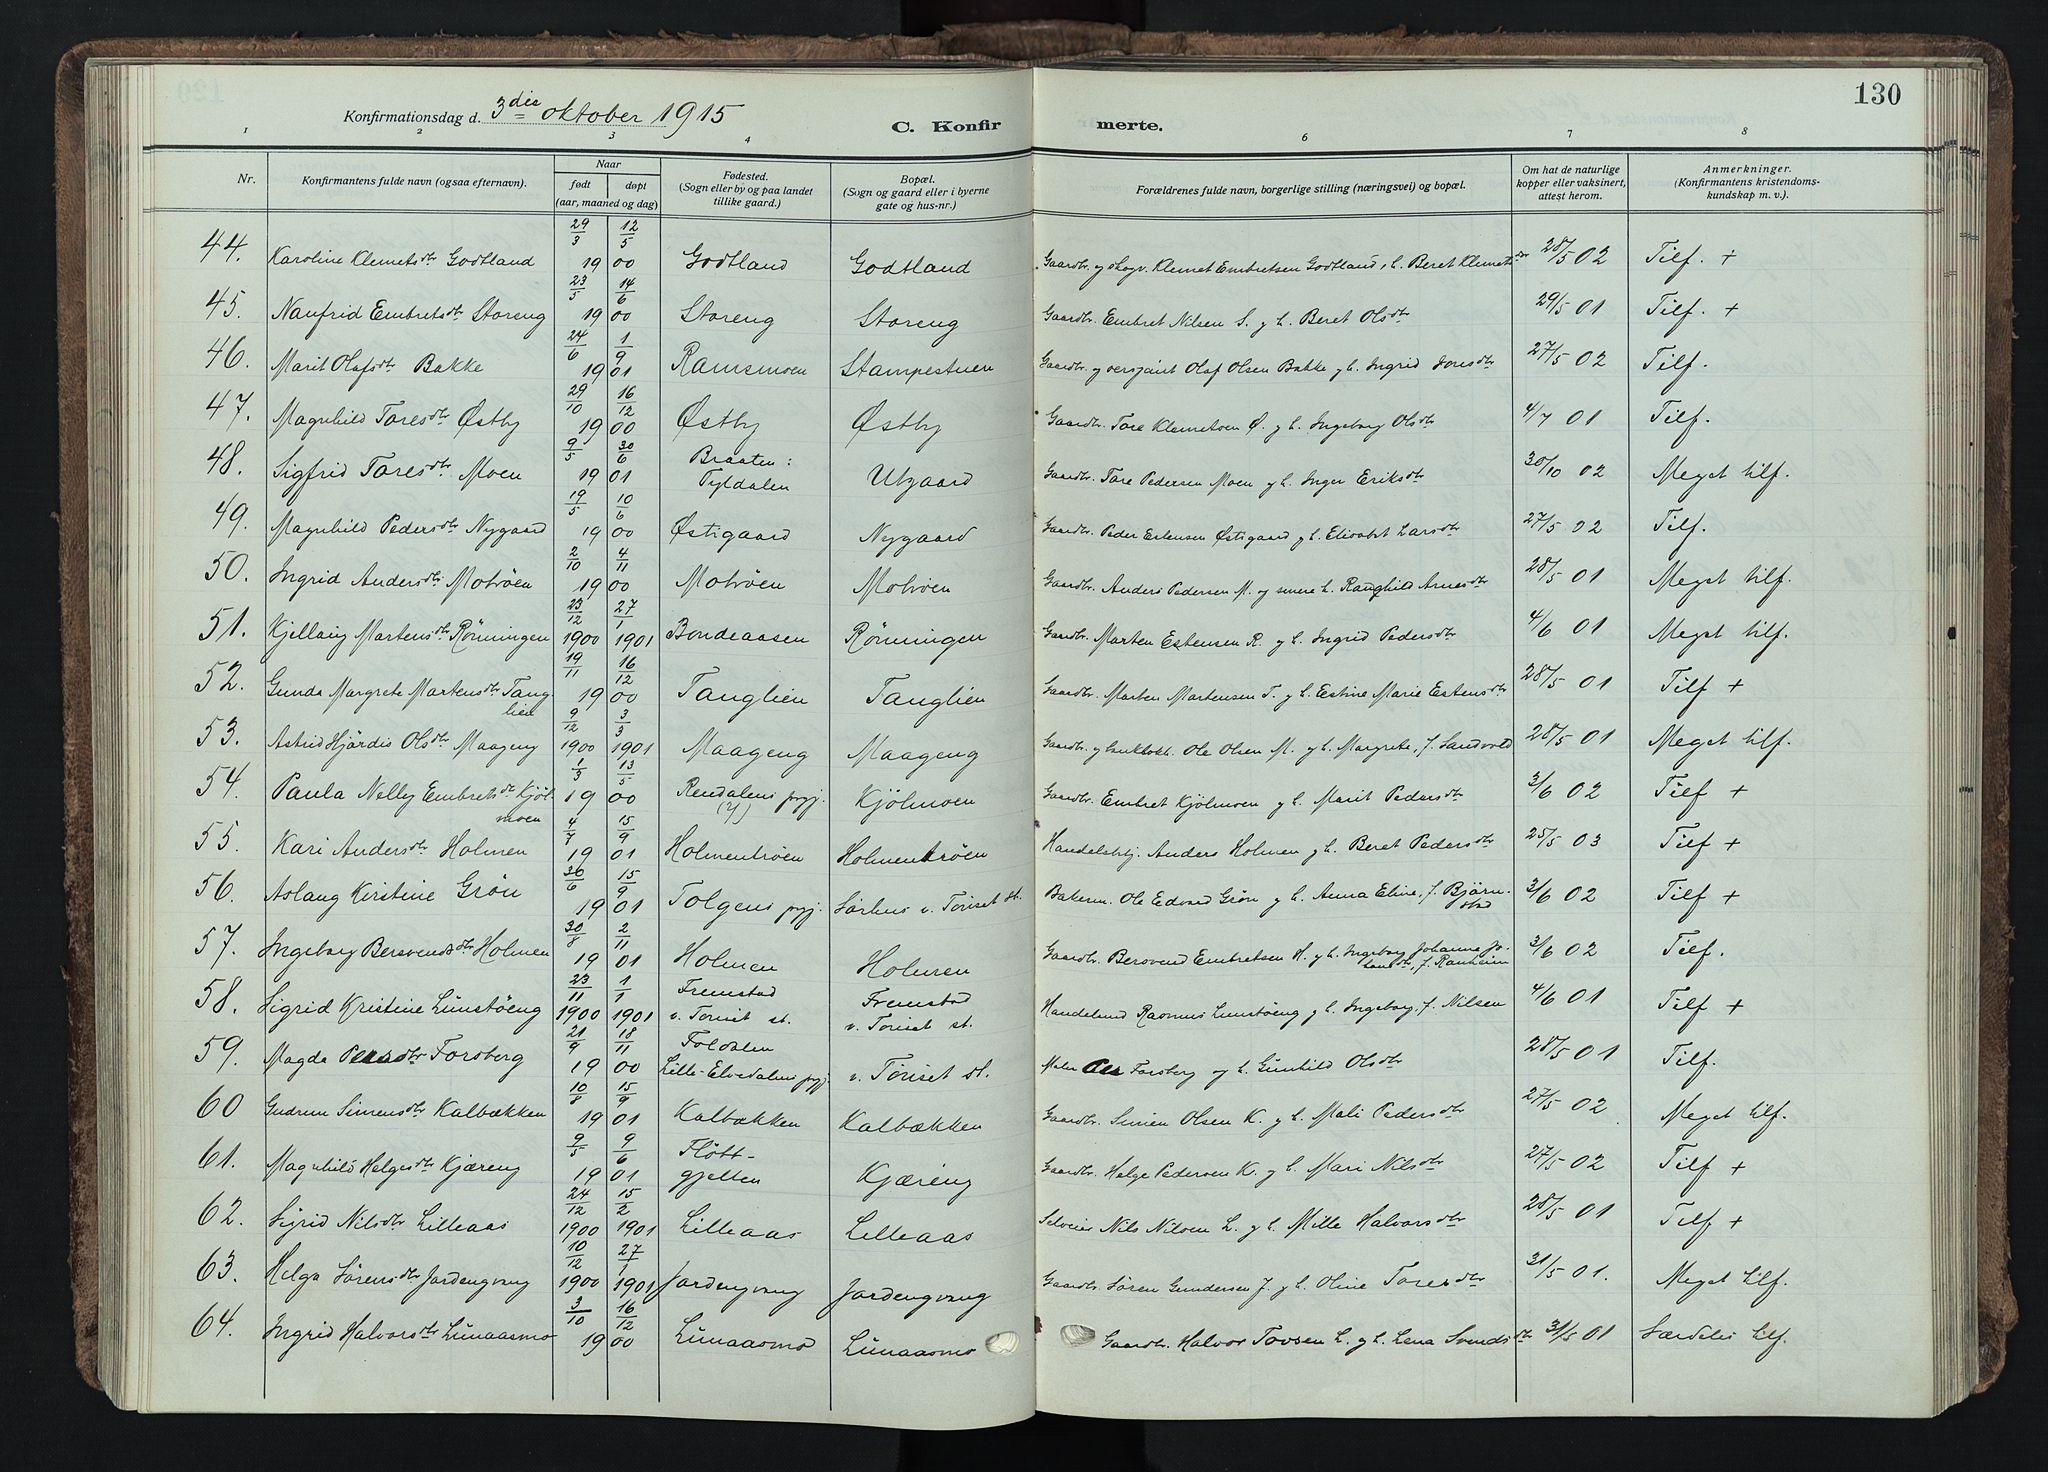 130
Konfirmationsdag d. 3die oktober 1915
C. Konfirmerte.
1 2 3 4 6 7 8
Nr. Konfirmantens fulde navn (ogsaa efternavn). Naar født døpt (aar, maaned og dag) Fødested. (Sogn eller by og paa landet tillike gaard.) Bopæl. (Sogn og gaard eller i byerne gate og hus-nr.) Forældrenes fulde navn, borgerlige stilling (næringsvei) og bopæl. Om hat de naturlige kopper eller vaksinert, attest herom. Anmerkninger. (Konfirmantens kristendomskundskap m. v.).
44. Karoline Klemetsdtr Godtland 29/3 1900 12/5 00 Godtland Godtland Gaardbr. og skogv. Klemet Embretsen Godtland, h. Beret Klemetsdtr 28/5 02 Tilf. +
45. Naufrid Embretsdtr Storeng 23/5 1900 14/6 00 Storeng Storeng Gaardbr. Embret Nilsen S. og h. Beret Olsdtr 29/5 01 Tilf. +
46. Marit Olafsdtr Bakke 24/6 1901 1/9 01 Ramsmoen Stampestuen Gaardbr. og versjant Olaf Olsen Bakke og h. Ingrid Jonsdtr 27/5 02 Tilf.
47. Magnhild Toresdtr Østby 29/10 1900 16/12 00 Østby Østby Gaardbr. Tore Klemetsen Ø. og h. Ingeborg Olsdtr 4/7 01 Tilf.
48. Sigfrid Toresdtr Moen 9/5 1901 30/6 01 Braaten: Tyldalen Utgaard Gaardbr. Tore Pedersen Moen og h. Inger Eriksdtr 30/10 02 Meget tilf.
49. Magnhild Pedersdtr Nygaard 19/5 1900 10/6 00 Østigaard Nygaard Gaardbr. Peder Estensen Østigaard og h. Elisabet Larsdtr 27/5 02 Tilf.
50. Ingrid Andersdtr Motrøen 2/10 1900 4/11 00 Motrøen Motrøen Gaardbr. Anders Pedersen M. og h. Ranghild Arnesdtr 28/5 01 Meget tilf.
51. Kjellaug Martensdtr Rønningen 23/12 1900 27/1 1901 Bondeaasen Rønningen Gaardbr. Marten Estensen R. og h. Ingrid Pedersdtr 4/6 01 Meget tilf.
52. Gunda Margrete Martensdtr Tanglien 19/11 1900 16/12 00 Tanglien Tanglien Gaardbr. Marten Martensen T. og h. Estine Marie Estensdtr 28/5 01 Tilf +
53. Astrid Hjördis Olsdtr Maageng 9/12 1900 3/3 1901 Maageng Maageng Gaardbr. og Ole Olsen M. og h. Margrete, f. Sandvold 28/5 01 Meget tilf.
54. Paula Nelly Embretsdtr Kjølmoen 1/5 1900 13/5 00 Rendalens prgj. (Y) Kjølmoen Gaardbr. Embret Kjølmoen og h. Marit Pedersdtr 3/6 02 Tilf +
55. Kari Andersdtr Holmen 4/7 1901 15/9 01 Holmentrøen Holmentrøen Handelsbtj. Anders Holmen og h. Beret Pedersdtr 25/5 03 Tilf +
56. Aslaug Kirstine Grøn 30/6 1901 15/9 01 Tolgens prgj. Sørhus v. Tønset st. Bakerm. Ole Edvard Grøn og h. Anna Eline, f. Bjørnstad 3/6 02 Tilf +
57. Ingeborg Bersvendsdtr Holmen 30/8 1901 2/11 01 Holmen Holmen Gaardbr. Bersvend Embretsen H. og h. Ingeborg Johanna Jo-hansdtr, f. Ranheim 3/6 02 Tilf.
58. Sigrid Kristine Lunstøeng 23/11 1900 1/1 1901 Fremstad v. Tønset st. Fremstad v. Tønset st. Handelsmd Rasmus Lunstøeng og h. Ingeborg, f. Nilsen 4/6 01 Tilf +
59. Magda Persdtr Forsberg 21/9 1900 18/11 00 Foldalen Lille-Elvedalens prgj v. Tønset st. Maler Per Forsberg og h. Gunhild Olsdtr 28/5 01 Tilf.
60 Gudrun Simensdtr Kalbækken 10/8 1901 15/9 01 Kalbækken Kalbækken Gaardbr. Simen Olsen K. og h. Mali Pedersdtr 27/5 02 Meget tilf.
61. Magnhild Helgesdtr Kjæreng 9/5 1901 9/6 01 Fløtt-gjelten Kjæreng Gaardbr. Helge Pedersen K. og h. Mari Nilsdtr 27/5 02 Tilf +
62. Sigrid Nilsdtr Lilleaas 24/12 1900 15/2 1901 Lilleaas Lilleaas Selveier Nils Nilsen L. og h. Mille Halvorsdtr 28/5 01 Tilf +
63. Helga Sørensdtr Jordengvang 10/12 1900 27/1 1901 Jordengvang Jordengvang Gaardbr. Søren Gundersen J. og h. Oline Toresdtr 31/5 01. Meget tilf.
64. Ingrid Halvorsdtr Lunaasmo 3/10 1900 16/12 00 Lunaasmo Lunaasmo Gaardbr. Halvor Tovsen L. og h. Lena Svendsdtr 31/5 01 Særdeles tilf.